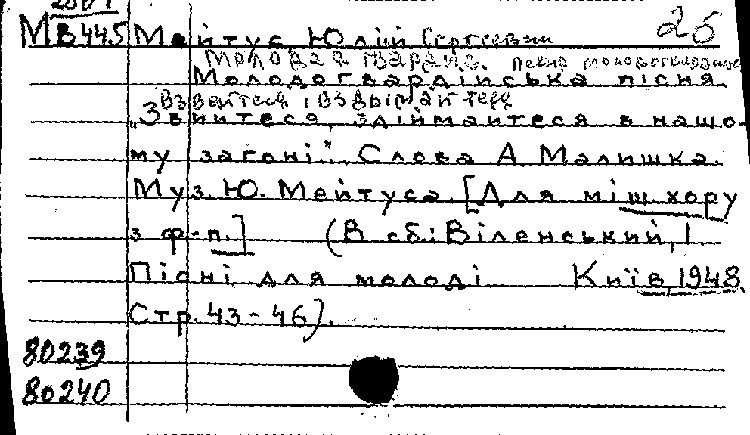 2б
МВ445 Мейтус Юлій Сергеевич
Молодая гвардия. песня молодогвардейцев
Молодогвардійська пісня
Взвейтеся і вздымайтеся
„Звийтеся, здіймайтеся в нашо-
му загоні". Слова А. Малишка.
Муз. Ю. Мейтуса. [Для міш. хору
з ф-п.] (В сб.: Віленський, І
Пісні для молоді Київ, 1948.
Стр. 43-46).
80239
80240